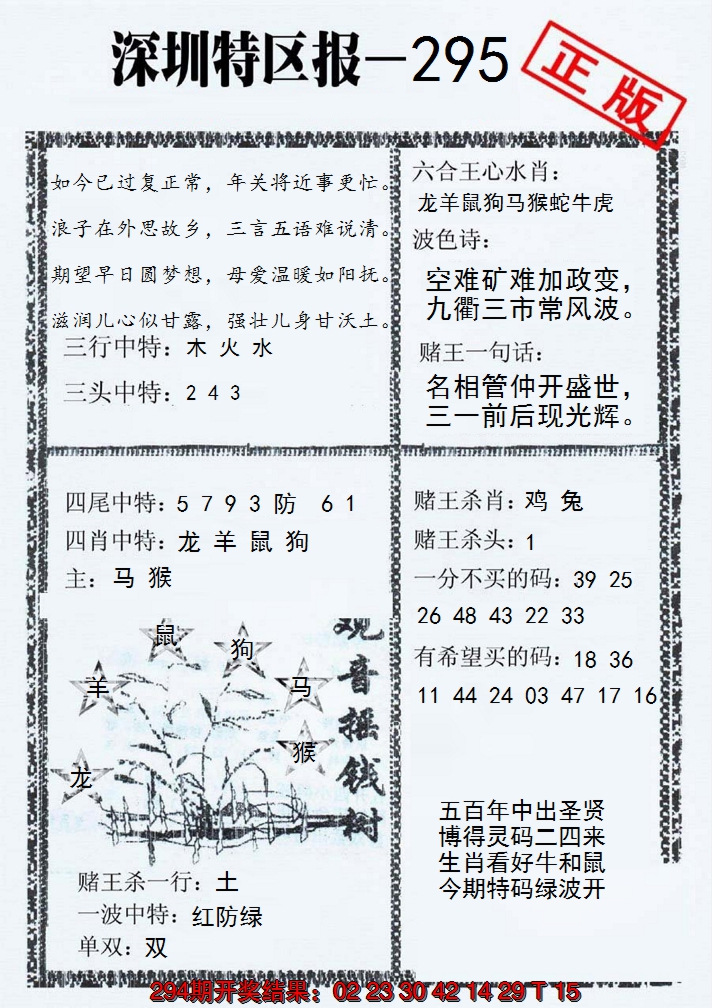 深圳特区报—295
正版
如今已过复正常，年关将近事更忙。
浪子在外思故乡，三言五语难说清。
期望早日圆梦想，母爱温暖如阳抚。
滋润儿心似甘露，强壮儿身甘沃土。
三行中特：木 火 水
三头中特：2 4 3
六合王心水肖：
龙羊鼠狗马猴蛇牛虎
波色诗：
空难矿难加政变，
九衢三市常风波。
赌王一句话：
名相管仲开盛世，
三一前后现光辉。
四尾中特：5 7 9 3 防 6 1
四肖中特：龙 羊 鼠 狗
主：马 猴
赌王杀肖：鸡 兔
赌王杀头：1
一分不买的码：39 25
26 48 43 22 33
有希望买的码：18 36
11 44 24 03 47 17 16
观音摇钱树
鼠
狗
羊
马
猴
龙
赌王杀一行：土
一波中特：红防绿
单双：双
五百年中出圣贤
博得灵码二四来
生肖看好牛和鼠
今期特码绿波开
294期开奖结果：02 23 30 42 14 29 T 15